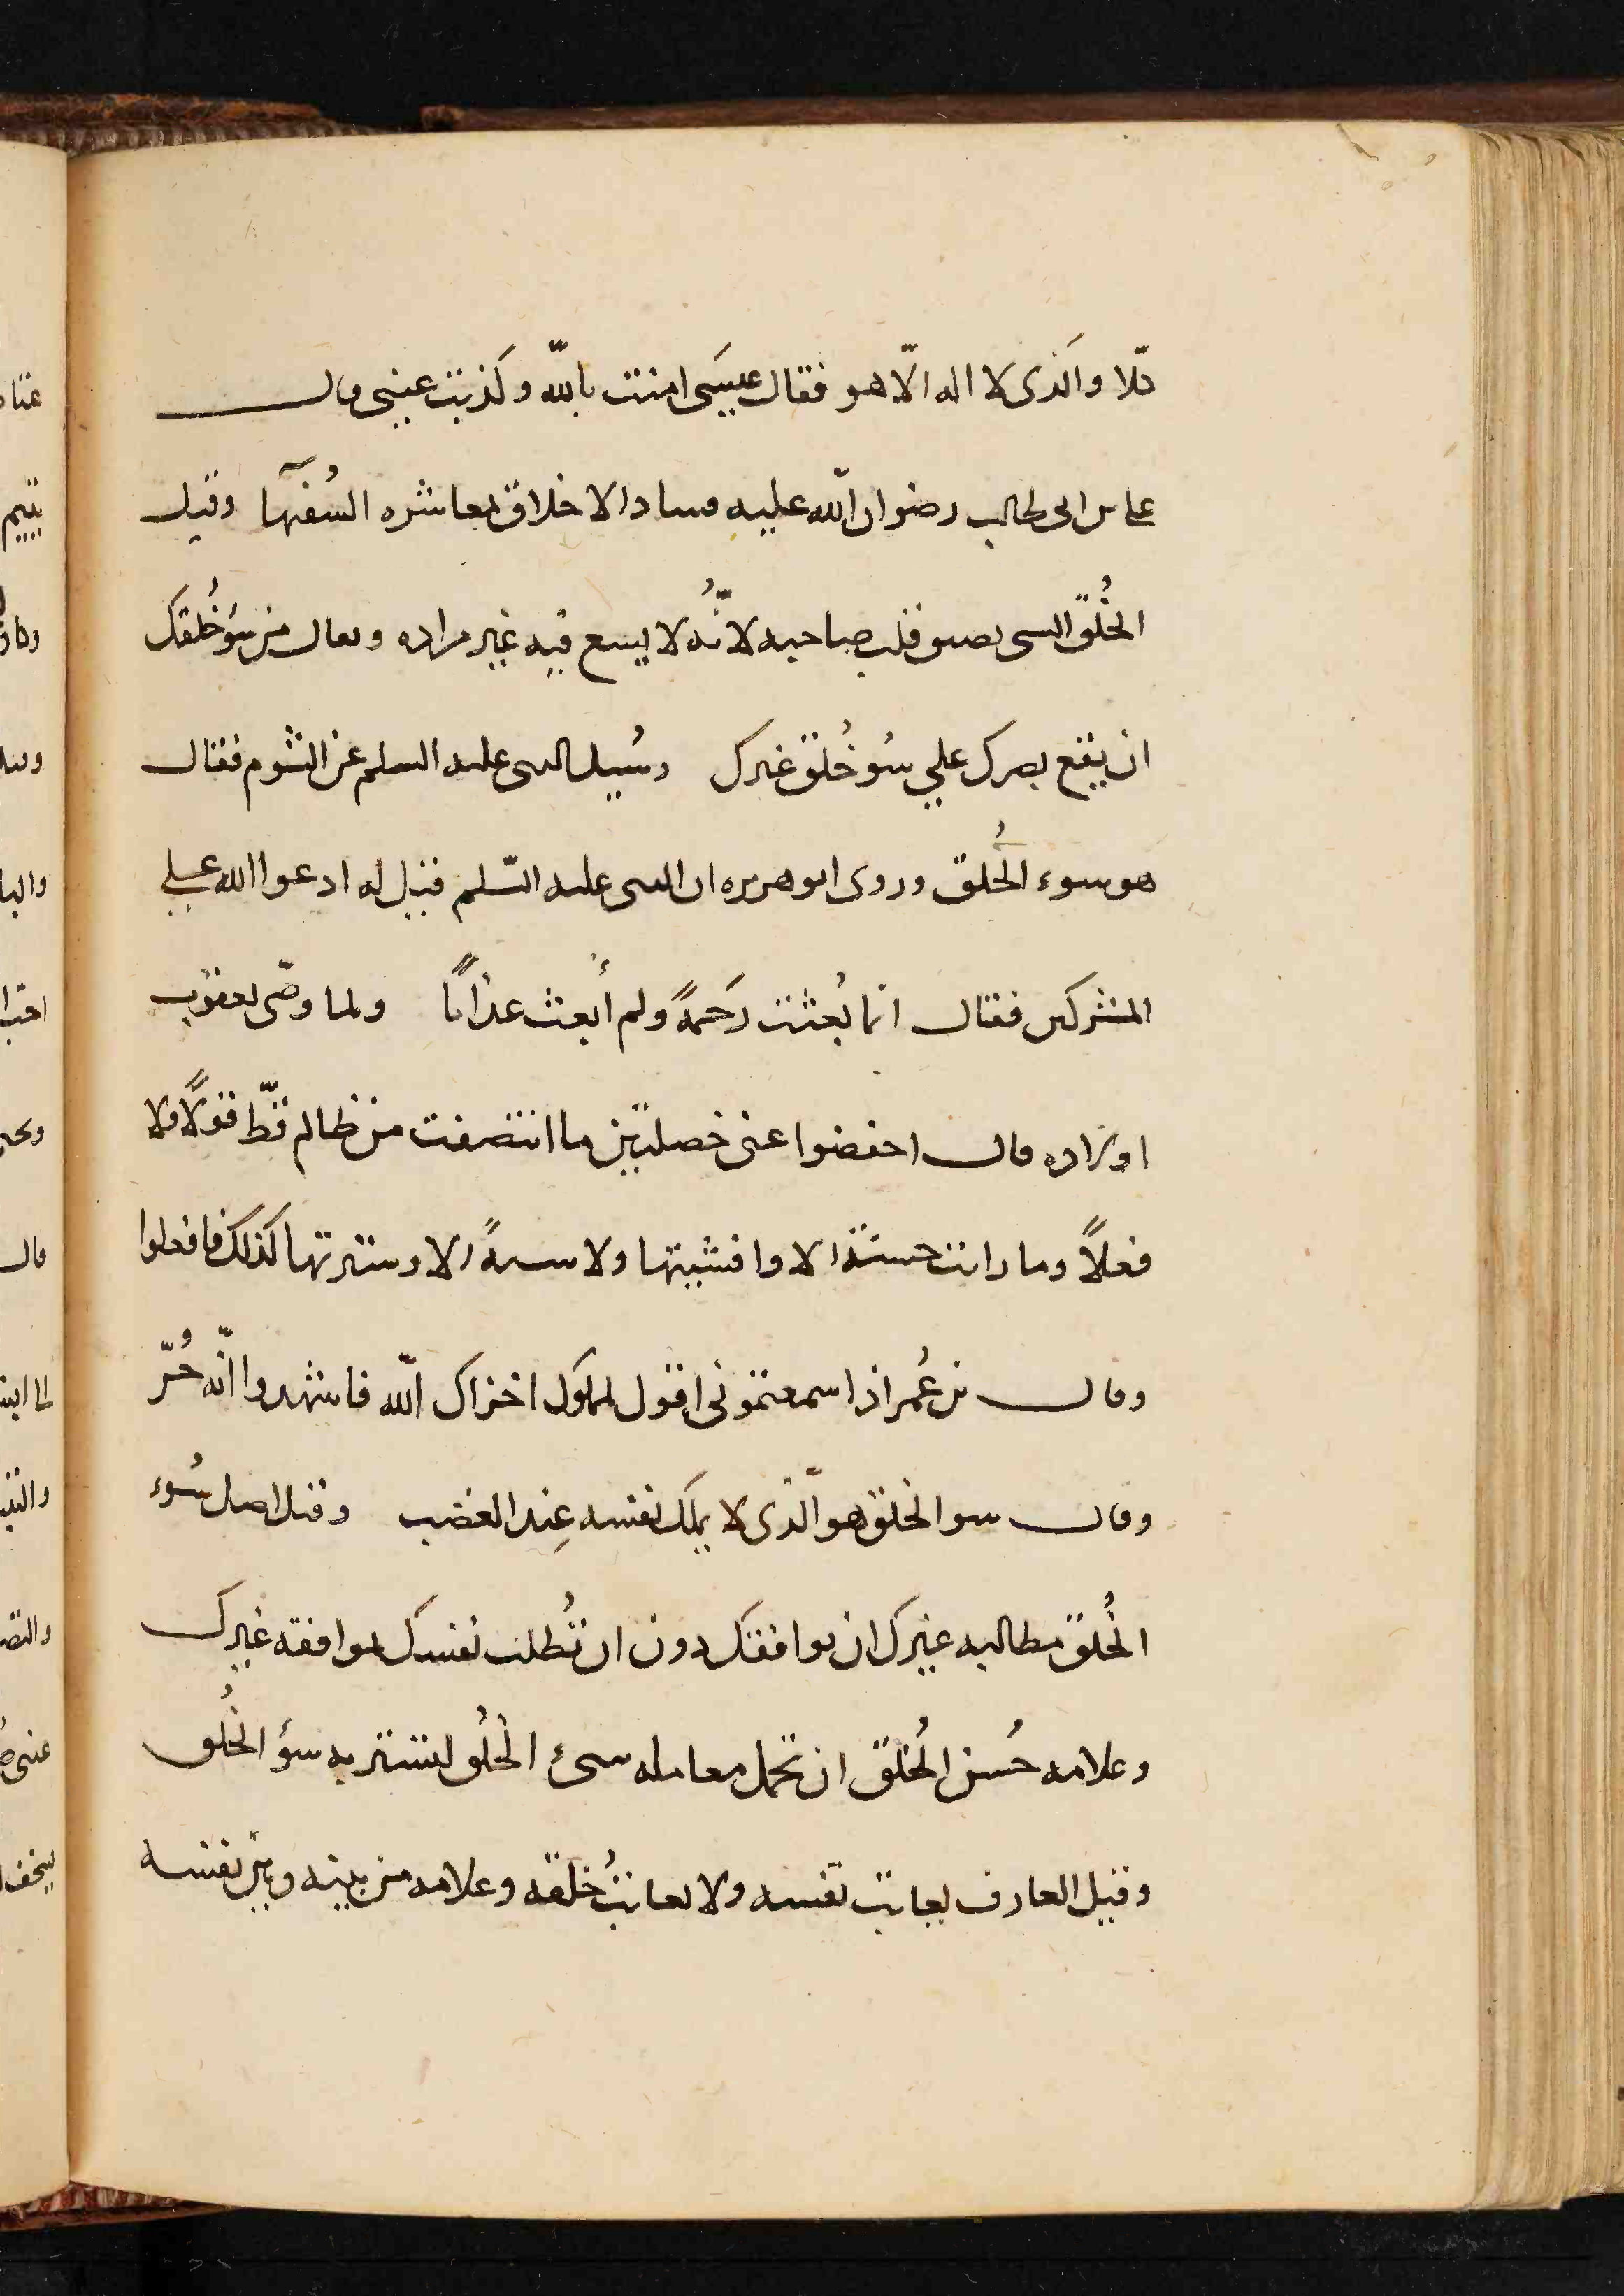 كلّا والذى لا اله الّا هو فقال عيسَى امنت بالله وكذبت عينى وقال
على بن ابى طالب رضوان اللّه عليه فساد الاخلاق بمعاشره السُفهآ وقيل
الخُلق السى يضيق قلب صاحبه لانّهُ لا يسع فيه غير مراده ويقال من سُو خُلقك
ان يقع بصرك على سُو خُلق غيرك وسُيل النبى عليه السلم عن الشوم فقال
هو سوء الخُلق وروى ابو هريره ان النبى عليه السّلم قيل له ادعوا الله على
المشركين فقال انما بُعثت رَحَمةً ولم أُبعث عذابًا ولما وصّى يعقوب
اولاده قال احفضوا عنى خصلتين ما انتصفت من ظالم قطّ قولًا ولا
فعلاً وما رايت حسنة الا وافشيتها ولا سيةً الا وسترتها كذلك فافعلوا
وقال بن عُمر اذا سمعتمونى اقول لمملوك اخزاك اللّه فاشهدوا انّه حُرّ
وقال سو الخلق هو الّذى لا يملك نفسه عِند الغضب وقيل اصل سُوء
الخُلق مطالبه غيرك ان يوافقك دون ان تُطلب نفسك بموافقه غيرك
وعلامه حُسن الخُلق ان تحمل معامله سىئ الخُلُق ليستتر به سؤ الخُلُق
وقيل العارف يعاتب نفسه ولا يعاتبُ خلقه وعلامه من بينه وبين نفسه